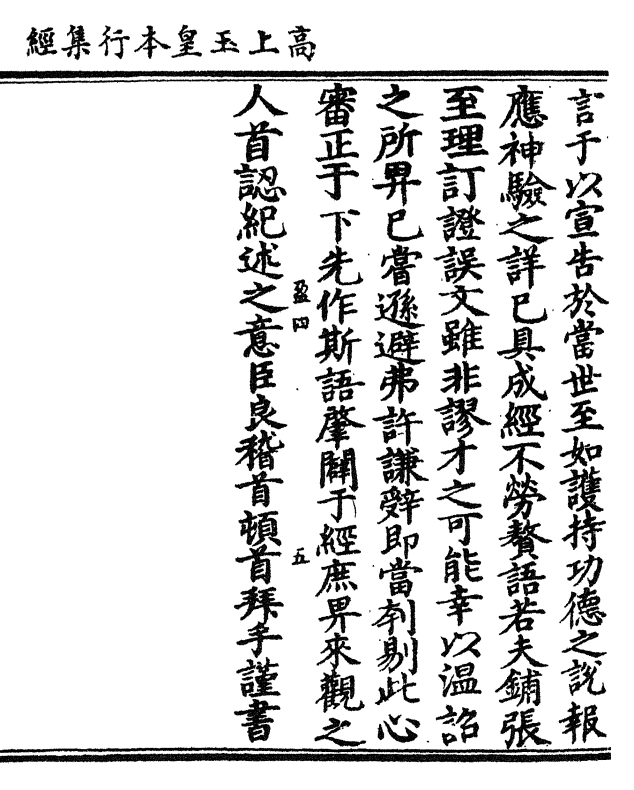 高上玉皇本行集經
言于以宣告於當世至如護持功德之說報
應神驗之詳已具成經不勞贅語若夫鋪張
至理訂證誤文雖非謬才之可能幸以温詔
之所畀已嘗遜避弗許謙辤即當刳剔此心
審正于下先作斯語肇闢于經庶畀來觀之
盈四
五
人首認紀述之意臣良稽首頓首拜手謹書